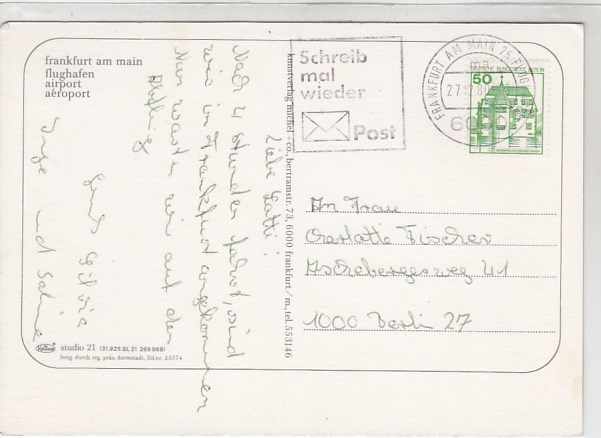 frankfurt am main
flughafen
airport
aéroport
Liebe Lotti!
Nach 4 stunden fahrt, sind
wir in Frankfurt angekommen
Nun warten wir auf den
Abflug
Gruß Silvia
Inge und Sabine
studio 21 (91.925.SL 21 269 968)
kunstverlag michel + co., bertramstr. 73, 6000 frankfurt/m., tel. 553146
Schreib
mal
wieder
Post
FRANKFURT AM MAIN 75 FLUG
ma
27.12.80
6000
DEUTSCHE BUNDESPOST BERLIN
50
An Frau
Charlotte Fischer
Aschebergersweg 41
1000 Berlin 27